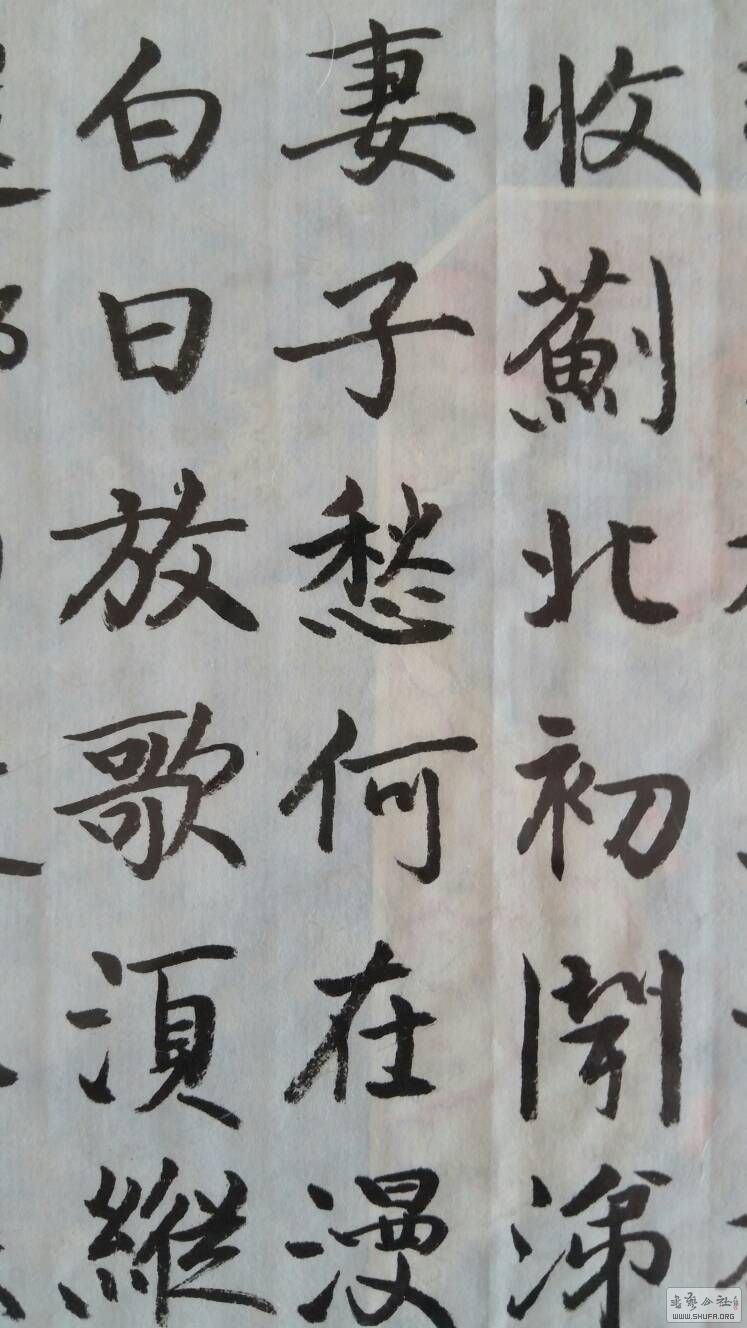 收薊北初聞涕
妻子愁何在漫
白日放歌須縱
书法公社
WWW.SHUFA.ORG